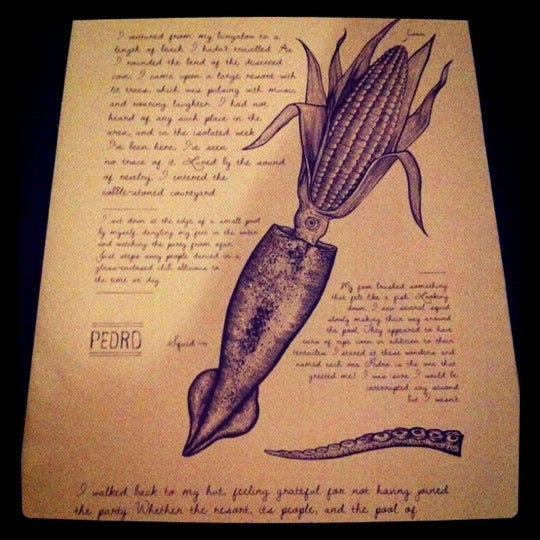 I ventured from my bungalow to a
length of beach I hadn't travelled. As
I rounded the bend of the deserted
cove, I came upon a large resort with
lit trees, which was pulsing with music
and roaring laughter. I had not
heard of any such place in the
area, and in the isolated week
I've been here, I've seen
no trace of it. Lured by the sound
of revelry, I entered the
cobble-stoned courtyard.
I sat down at the edge of a small pool
by myself, dangling my feet in the water
and watching the party from afar.
Just steps away people danced in a
glass-enclosed oblivious to
the time or day.
Corn
My foot brushed something
that felt like a fish. Looking
down, I saw several squid
slowly making their way around
the pool. They appeared to have
ears of ripe corn in addition to their
tentacles. I stared at these wonders and
named each one (Pedro is the one that
greeted me). I was sure I would be
interrupted any second
but I wasn't.
PEDRO
Squid
I walked back to my hut, feeling grateful for not having joined
the party. Whether the resort, its people, and the pool of